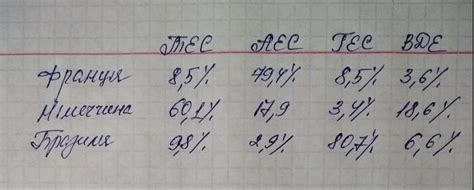 ТЕС АЕС ГЕС ВДЕ
Франція 8,5% 79,4% 8,5% 3,6%
Німеччина 60,1% 17,9 3,4% 18,6%
Бразилія 9,8% 2,9% 80,7% 6,6%